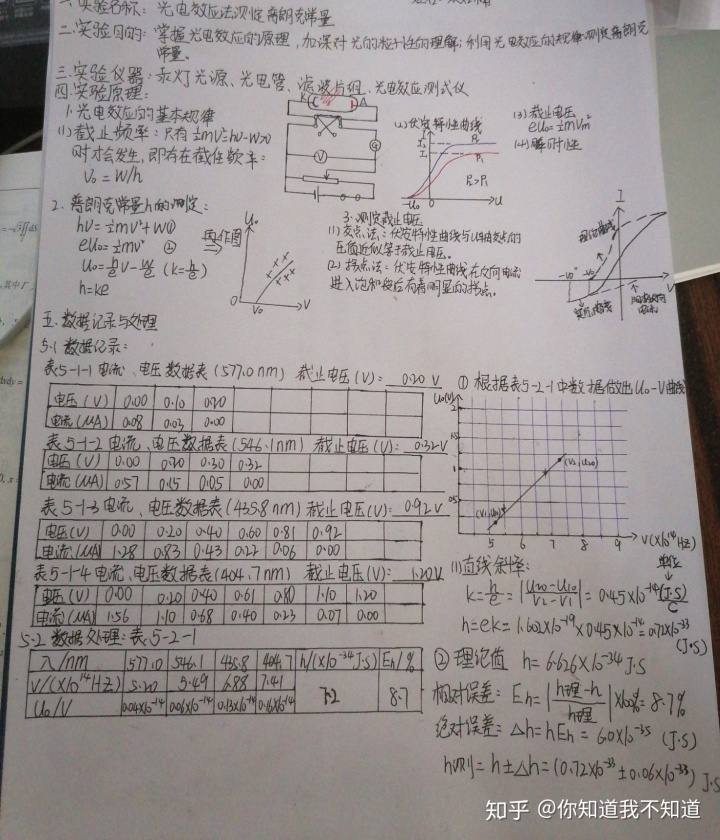 一.实验名称: 光电效应法测定普朗克常量
二.实验目的: 掌握光电效应的原理,加深对光的粒子性的理解;利用光电效应的规律测定普朗克
常量。
三.实验仪器: 汞灯光源、光电管、滤波片组、光电效应测试仪
四.实验原理:
1.光电效应的基本规律
(1)截止频率: 只有½mv²=hν-W>0
时才会发生,即存在截止频率:
ν₀=W/h
K
A
G
V
(2)伏安特性曲线
I
I₂
I₁
P₂
P₁
P₂>P₁
-U₀
0
U
(3)截止电压
eU₀=½mVm²
(4)瞬时性
2.普朗克常量h的测定:
hν=½mv²+W①
eU₀=½mv² ②
U₀=h/e ν-W/e (k=h/e)
h=ke
再作图
U₀
0
ν₀
ν
3.测定截止电压
(1)交点法:伏安特性曲线与U轴交点的
电压值近似等于截止电压。
(2)拐点法:伏安特性曲线在反向电流
进入饱和段后有着明显的拐点。
I
理论曲线
-U₀
实际曲线
V
五.数据记录与处理
5.1 数据记录:
表5-1-1 电流、电压数据表(577.0nm) 截止电压(V): 0.20 V
电压(V) 0.00 0.10 0.20
电流(μA) 0.08 0.03 0.00
表5-1-2 电流、电压数据表(546.1nm) 截止电压(V): 0.32V
电压(V) 0.00 0.20 0.30 0.32
电流(μA) 0.57 0.15 0.05 0.00
表5-1-3 电流、电压数据表(435.8nm) 截止电压(V): 0.92V
电压(V) 0.00 0.20 0.40 0.60 0.81 0.92
电流(μA) 1.28 0.83 0.43 0.22 0.06 0.00
表5-1-4 电流、电压数据表(404.7nm) 截止电压(V): 1.20V
电压(V) 0.00 0.20 0.40 0.61 0.80 1.10 1.20
电流(μA) 1.56 1.10 0.68 0.40 0.23 0.07 0.00
5.2 数据处理: 表5-2-1
λ/nm 577.0 546.1 435.8 404.7 h/(×10⁻³⁴J·S) Eh/%
ν/(×10¹⁴Hz) 5.20 5.49 6.88 7.41 7.2 8.7
U₀/V 0.04×10⁻¹⁴ 0.06×10⁻¹⁴ 0.13×10⁻¹⁴ 0.16×10⁻¹⁴
① 根据表5-2-1中数据做出U₀-ν曲线
U₀(V)
2
1.5
1
0.5
(V₁,U₁₀)
(V₂,U₂₀)
5 6 7 8 9 ν(×10¹⁴Hz)
(1)直线斜率:
单位
k=h/e=|U₂₀-U₁₀/V₂-V₁|=0.45×10⁻¹⁴(J·S)/C
h=ek=1.602×10⁻¹⁹×0.45×10⁻¹⁴=0.72×10⁻³³
(J·S)
② 理论值 h=6.626×10⁻³⁴J·S
相对误差: Eh=|h理-h/h理|×100%=8.7%
绝对误差: △h=hEh=6.0×10⁻³⁵ (J·S)
h测=h±△h=(0.72×10⁻³³±0.06×10⁻³³) J·S
知乎 @你知道我不知道